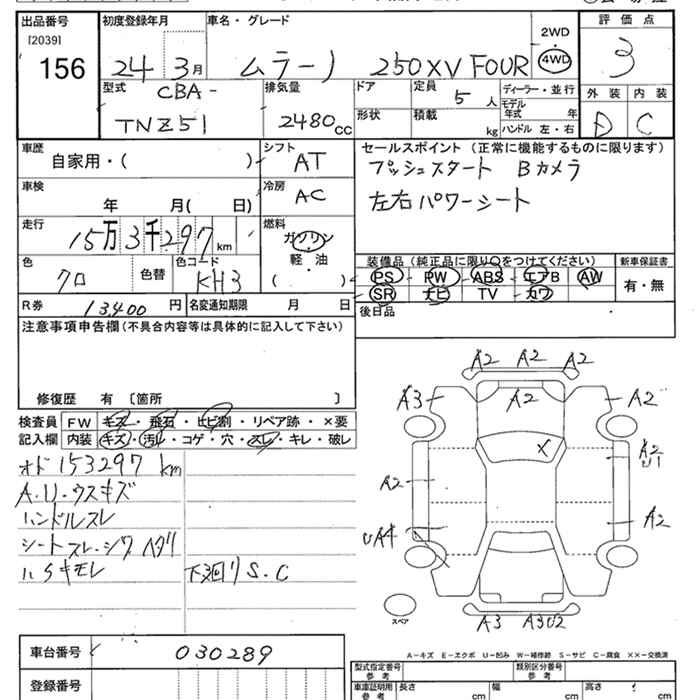 出品番号
[2039]
156
初度登録年月
24 3月
車名・グレード
ムラーノ 250XV FOUR
2WD
4WD
評価点
3
外装 内装
D C
型式
CBA-
TNZ51
排気量
2480cc
ドア
形状
定員 5人
積載 kg
ディーラー・並行
モデル年式 年
ハンドル 左・右
車歴
自家用・( )
シフト
AT
車検
年 月( 日)
冷房
AC
走行
15万3千297km
燃料
ガソリン
・
軽・油
( )
色
クロ
色替
色コード
KH3
R券 13,400円
名変通知期限 月 日
セールスポイント(正常に機能するものに限ります)
プッシュスタート Bカメラ
左右パワーシート
装備品(純正品に限り○をつけてください)
PS PW ABS エアB AW
SR ナビ TV カワ
新車保証書
有・無
後日品
注意事項申告欄(不具合内容等は具体的に記入して下さい)
修復歴 有〔箇所 〕
検査員
記入欄
FW キズ・飛石・ヒビ割・リペア跡・×要
内装 キズ・汚れ・コゲ・穴・スレ・キレ・破レ
オド 153297 km
A.U.ウスキズ
ハンドルスレ
シートスレ.シワ ヘタリ
下廻り S.C
A2 A2 A2
A3 A2 A2
X
A2 A2
U1
A2
UA4
A3 A3U2
スペア
A-キズ E-エクボ U-凹み W-補修跡 S-サビ C-腐食 ××-交換済
車台番号 030289
登録番号
型式指定番号
参考
類別区分番号
参考
車庫証明用
参考
長さ cm
幅 cm
高さ cm